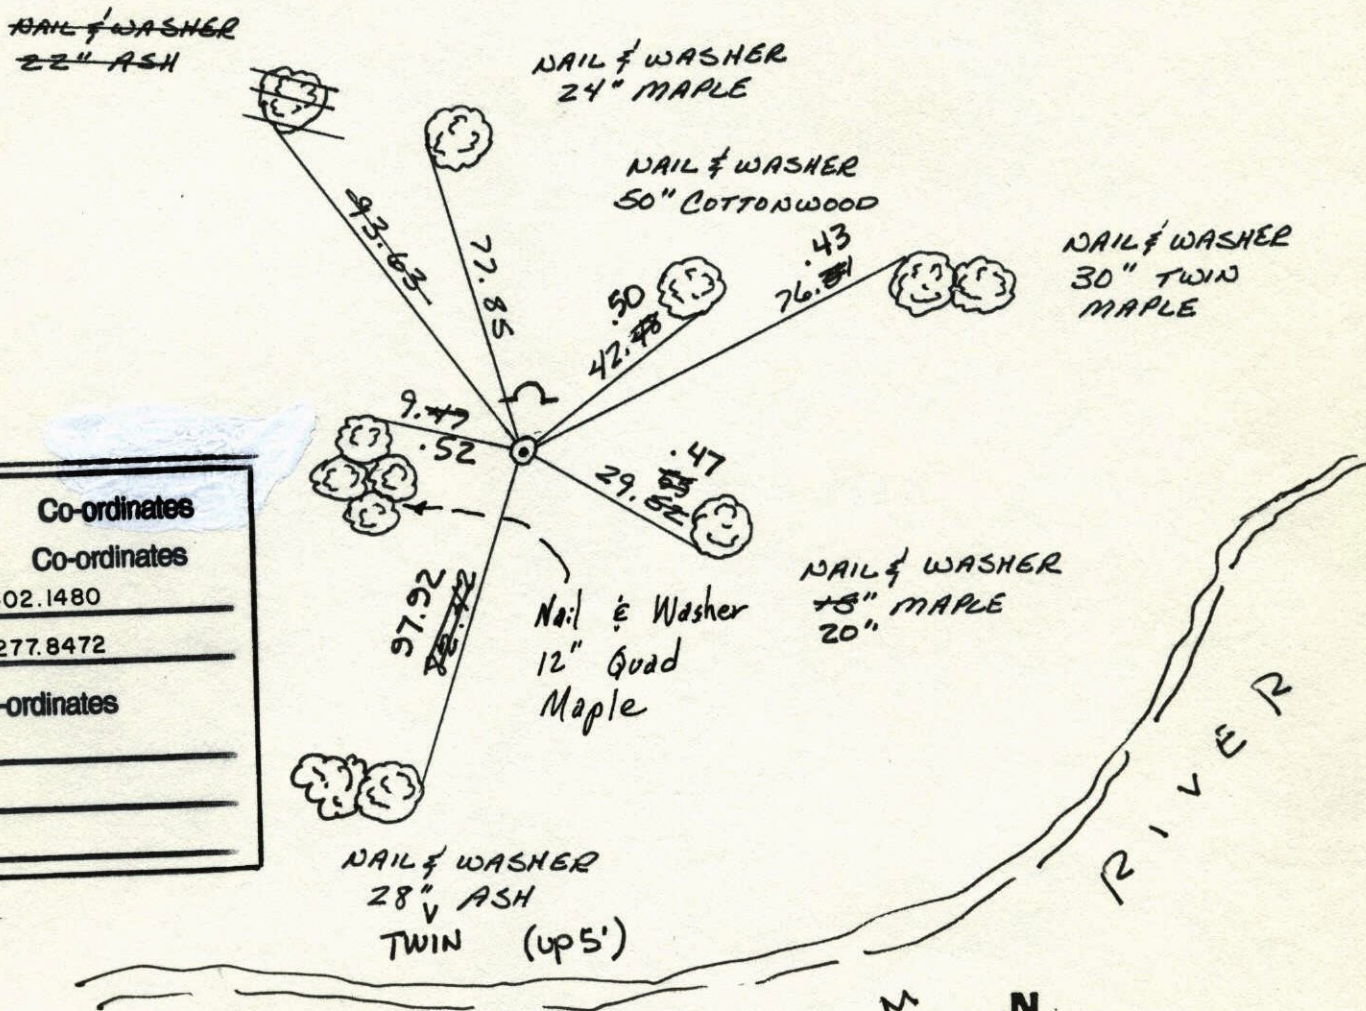 NAIL & WASHER
22" ASH
NAIL & WASHER
24" MAPLE
NAIL & WASHER
50" COTTONWOOD
NAIL & WASHER
30" TWIN
MAPLE
93.63
77.85
.50
42.48
.43
76.
9.47
.52
.47
29.62
97.92
Nail & Washer
12" Quad
Maple
NAIL & WASHER
MAPLE
20"
NAIL & WASHER
28" ASH
TWIN (up 5')
Co-ordinates
Co-ordinates
02.1480
277.8472
-ordinates
RIVER
M N